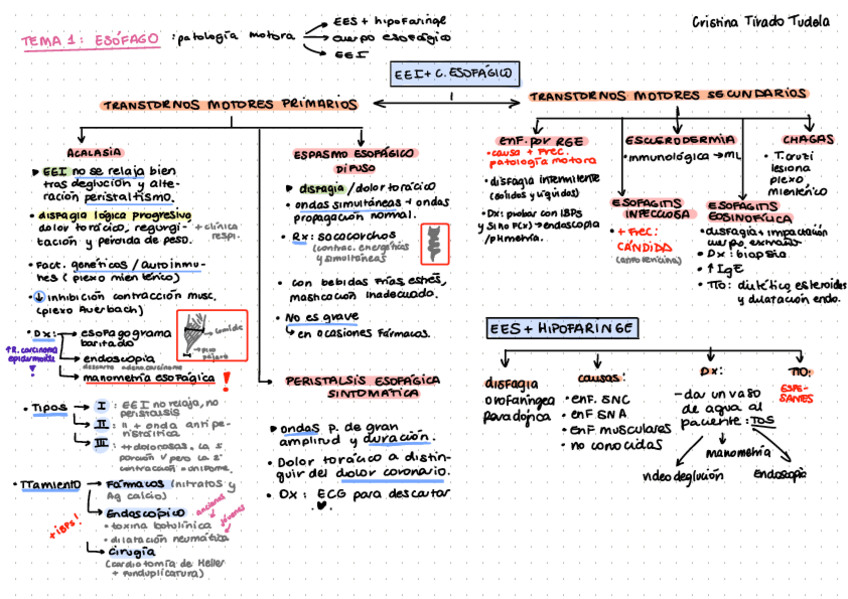 Cristina Tirado Tudela
TEMA 1: ESÓFAGO : patología motora
EES + hipofaringe
cuerpo esofágico
EEI
EEI + C. ESOFÁGICO
TRANSTORNOS MOTORES PRIMARIOS
TRANSTORNOS MOTORES SECUNDARIOS
ACALASIA
EEI no se relaja bien
tras deglución y alte-
ración peristaltismo.
• disfagia lógica progresiva
dolor torácico, regurgi-
tación y pérdida de peso.
+ clínica
respi.
• Fact. genéticos / autoinmu-
nes ( plexo mientérico)
• ↓ inhibición contracción musc.
(plexo Auerbach)
• Dx:
esofagograma
baritado
endoscopia
descarta adenocarcinoma
manometría esofágica !
↑R. carcinoma
epidermoide
!
comida
• Tipos
I : EEI no relaja, no
peristalsis
II : " + onda antipe-
ristáltica
III : ++dolorosas. La 5
porción V pero la 2ª
contracción uniforme.
• TTamiento
Fármacos (nitratos y
Ag calcio)
Endoscópico
• toxina botulínica
ancianos
• dilatación neumática
jóvenes
cirugía
(cardiotomía de Heller
+ funduplicatura)
+ IBPs!
ESPASMO ESOFÁGICO
DIFUSO
disfagia / dolor torácico
• ondas simultáneas + ondas
propagación normal.
• Rx: sacacorchos
(contrac. energéticas
y simultáneas)
• con bebidas frías, estrés,
masticación inadecuado.
• No es grave
en ocasiones fármacos.
PERISTALSIS ESOFÁGICA
SINTOMÁTICA
ondas P. de gran
amplitud y duración.
• Dolor torácico a distin-
guir del dolor coronario.
• DX: ECG para descartar
♥.
ENF. por RGE
• causa + Frec.
patología motora
• disfagia intermitente
(sólidos y líquidos)
• Dx: probar con IBPs
y si no P(x) → endoscopia
/ pHmetría.
ESCLERODERMIA
• immunológica → ML
CHAGAS
• T. cruzi
lesiona
plexo
mientérico
ESOFAGITIS
INFECCIOSA
+ Frec:
CÁNDIDA
ESOFAGITIS
EOSINOFÍLICA
• disfagia + impactación
cuerpo extraño
• Dx: biopsia.
• ↑ IgE
• TTO: dietético, esteroides
y dilatación endo.
EES + HIPOFARINGE
disfagia
orofaríngea
paradójica
causas:
• enf. SNC
• enf SNA
• enf musculares
• no conocidas
Dx:
— dar un vaso
de agua al
paciente: TOS
videodeglución
manometría
Endoscopia
TTO:
ESPE-
SANTES